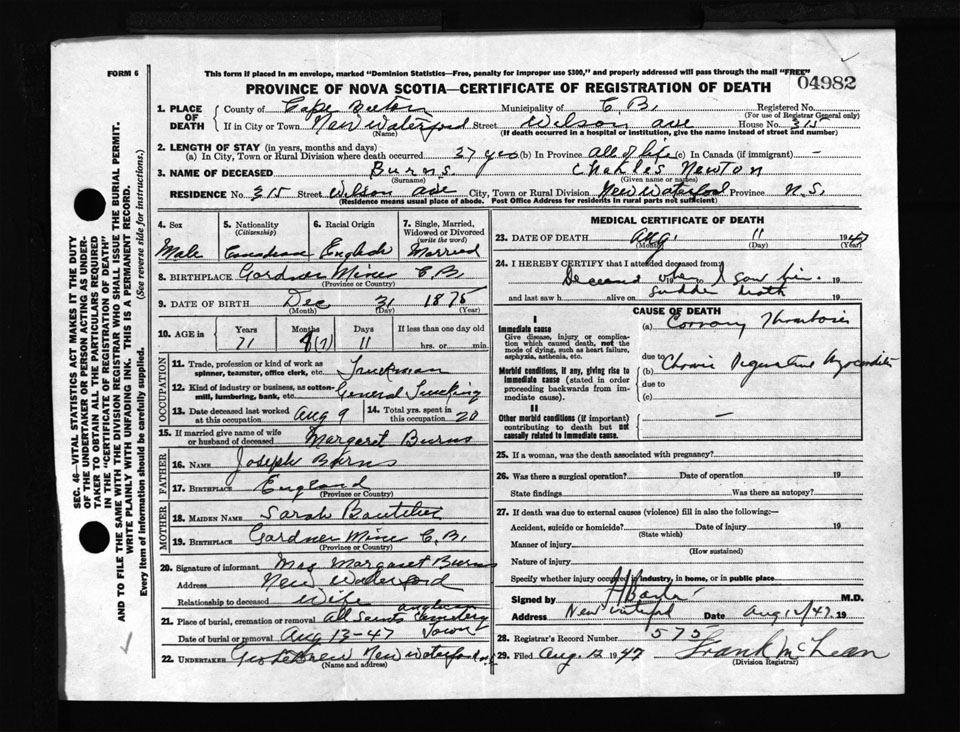 FORM 6
This form if placed in an envelope, marked "Dominion Statistics—Free, penalty for improper use $300," and properly addressed will pass through the mail "FREE"
04982
PROVINCE OF NOVA SCOTIA—CERTIFICATE OF REGISTRATION OF DEATH
1. PLACE OF DEATH County of Cape Breton Municipality of C.B. Registered No.
(For use of Registrar General only)
If in City or Town New Waterford Street Wilson ave House No. 315
(Name) (If death occurred in a hospital or institution, give the name instead of street and number)
2. LENGTH OF STAY (in years, months and days)
(a) In City, Town or Rural Division where death occurred 37 yrs (b) In Province all of life (c) In Canada (if immigrant) —
3. NAME OF DECEASED Burns. Charles Newton
(Surname) (Given name or names)
RESIDENCE No. 315 Street Wilson ave City, Town or Rural Division New Waterford Province N.S.
(Residence means usual place of abode. Post Office Address for residents in rural parts not sufficient)
4. Sex 5. Nationality (Citizenship) 6. Racial Origin 7. Single, Married, Widowed or Divorced (write the word)
Male Canadian English Married
8. BIRTHPLACE Gardner Mines C.B.
(Province or Country)
9. DATE OF BIRTH Dec 31 1875
(Month) (Day) (Year)
10. AGE in Years Months Days If less than one day old
71 (7) 11 hrs. or min.
OCCUPATION
11. Trade, profession or kind of work as spinner, teamster, office clerk, etc. Truckman
12. Kind of industry or business, as cotton-mill, lumbering, bank, etc. General Trucking
13. Date deceased last worked at this occupation Aug 9 14. Total yrs. spent in this occupation 20
15. If married give name of wife or husband of deceased Margaret Burns
FATHER
16. NAME Joseph Burns
17. BIRTHPLACE England
(Province or Country)
MOTHER
18. MAIDEN NAME Sarah
19. BIRTHPLACE Gardner Mines C.B.
(Province or Country)
20. Signature of informant Mrs Margaret Burns
Address New Waterford
Relationship to deceased Wife
21. Place of burial, cremation or removal All Saints anglican Cemetery
Date of burial or removal Aug 13-47 Town
22. UNDERTAKER New Waterford
(Name and address)
MEDICAL CERTIFICATE OF DEATH
23. DATE OF DEATH Aug. 11 1947
(Month) (Day) (Year)
24. I HEREBY CERTIFY that I attended deceased from
Deceased when I saw him.
and last saw h alive on sudden death 19
CAUSE OF DEATH
I
Immediate cause
Give disease, injury or complication which caused death, not the mode of dying, such as heart failure, asphyxia, asthenia, etc.
(a) Coronary Thrombosis
due to
Morbid conditions, if any, giving rise to immediate cause (stated in order proceeding backwards from immediate cause).
(b) Chronic Degenerative Myocarditis
due to
(c)
II
Other morbid conditions (if important) contributing to death but not causally related to immediate cause. —
25. If a woman, was the death associated with pregnancy?
26. Was there a surgical operation? Date of operation 19
State findings Was there an autopsy?
27. If death was due to external causes (violence) fill in also the following:—
Accident, suicide or homicide? Date of injury 19
(State which)
Manner of injury
(How sustained)
Nature of injury
Specify whether injury occurred in industry, in home, or in public place
Signed by M.D.
Address New Waterford Date Aug 12/47. 19
28. Registrar's Record Number 575
29. Filed Aug. 12 1947 Frank McLean
(Division Registrar)
SEC. 46—VITAL STATISTICS ACT MAKES IT THE DUTY
OF THE UNDERTAKER OR PERSON ACTING AS UNDER-
TAKER TO OBTAIN ALL THE PARTICULARS REQUIRED
IN THE "CERTIFICATE OF REGISTRATION OF DEATH"
AND TO FILE THE SAME WITH THE DIVISION REGISTRAR WHO SHALL ISSUE THE BURIAL PERMIT.
WRITE PLAINLY WITH UNFADING INK. THIS IS A PERMANENT RECORD.
Every item of Information should be carefully supplied. (See reverse side for instructions.)